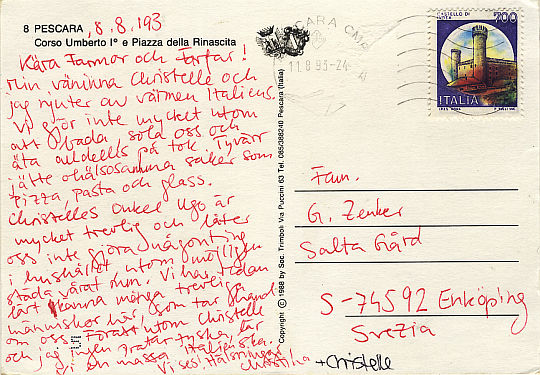 8 PESCARA
8.8.193
Corso Umberto I° e Piazza della Rinascita
Kära Farmor och Farfar!
Min väninna Christelle och
jag njuter av värmen Italiens.
Vi gör inte mycket utom
att bada sola oss och
äta alldeels på tok Tyvärr
jätte ohälsosamma saker som
pizza, pasta och glass.
Christelles onkel Ugo är
mycket trevlig och låter
oss inte göra någonting
i hushållet utom möjligen
städa vårat rum. Vi har redan
lärt känna många trevliga
människor här, som tar hand
om oss. Förutom Christelle
och jag ingen pratar tyska, lär
vi en massa italienska.
Vi ses! Hälsningar
Christina
+Christelle
Copyright © 1988 by Soc. Trimboli Via Puccini 63 Tel. 085/388240 Pescara (Italia)
PESCARA CMP
11.8.93-24
CASTELLO DI
IVREA
700
ITALIA
Fam.
G. Zenker
Salta Gård
S-74592 Enköping
Svezia